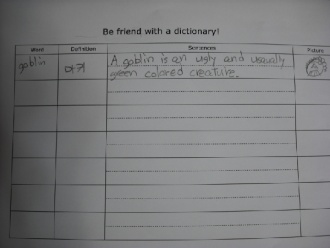 Be friend with a dictionary!
Word Definition Sentences Picture
goblin 마귀 A goblin is an ugly and usually
green colored creature.